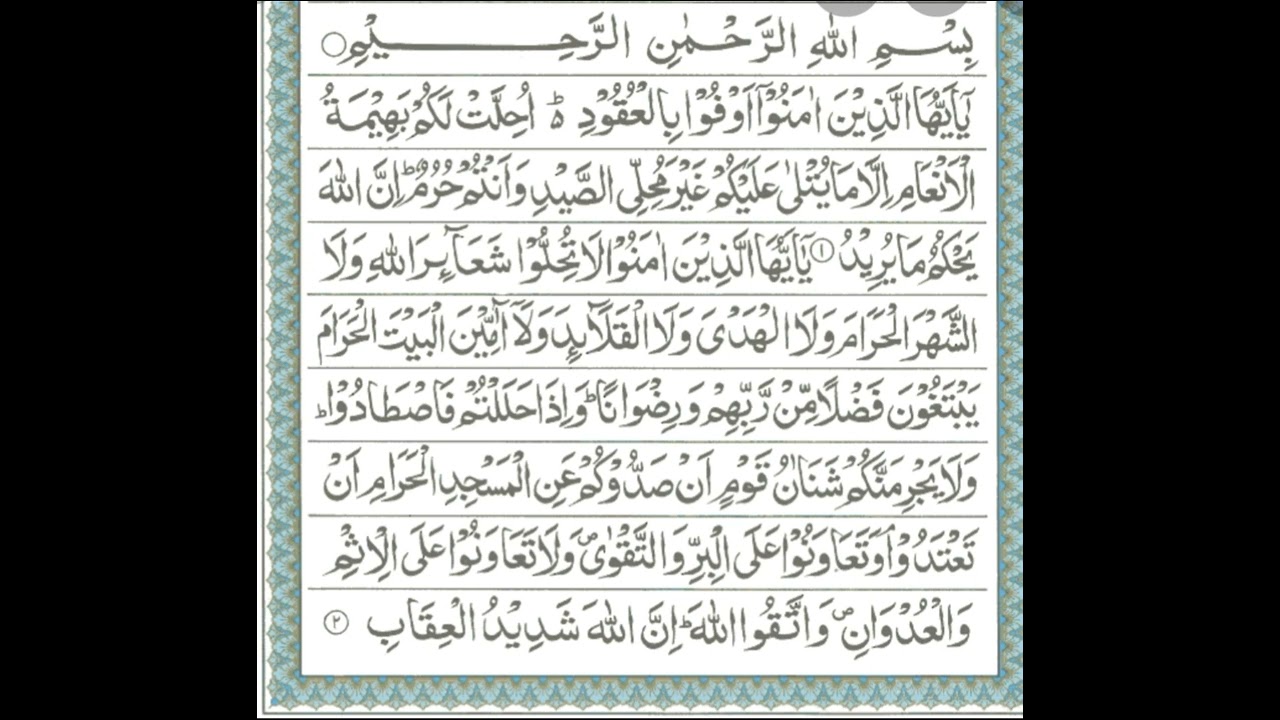 بِسْمِ اللهِ الرَّحْمٰنِ الرَّحِيْمِ ○
يٰۤاَيُّهَا الَّذِيْنَ اٰمَنُوْۤا اَوْفُوْا بِالْعُقُوْدِ ؕ اُحِلَّتْ لَكُمْ بَهِيْمَةُ
الْاَنْعَامِ اِلَّا مَا يُتْلٰى عَلَيْكُمْ غَيْرَ مُحِلِّى الصَّيْدِ وَاَنْتُمْ حُرُمٌ ؕ اِنَّ اللهَ
يَحْكُمُ مَا يُرِيْدُ ۝۱ يٰۤاَيُّهَا الَّذِيْنَ اٰمَنُوْا لَا تُحِلُّوْا شَعَآئِرَ اللهِ وَلَا
الشَّهْرَ الْحَرَامَ وَلَا الْهَدْىَ وَلَا الْقَلَآئِدَ وَلَاۤ آٰمِّيْنَ الْبَيْتَ الْحَرَامَ
يَبْتَغُوْنَ فَضْلًا مِّنْ رَّبِّهِمْ وَرِضْوَانًا ؕ وَاِذَا حَلَلْتُمْ فَاصْطَادُوْا ؕ
وَلَا يَجْرِمَنَّكُمْ شَنَاٰنُ قَوْمٍ اَنْ صَدُّوْكُمْ عَنِ الْمَسْجِدِ الْحَرَامِ اَنْ
تَعْتَدُوْا ۘ وَتَعَاوَنُوْا عَلَى الْبِرِّ وَالتَّقْوٰى ۪ وَلَا تَعَاوَنُوْا عَلَى الْاِثْمِ
وَالْعُدْوَانِ ۪ وَاتَّقُوا اللهَ ؕ اِنَّ اللهَ شَدِيْدُ الْعِقَابِ ۝۲